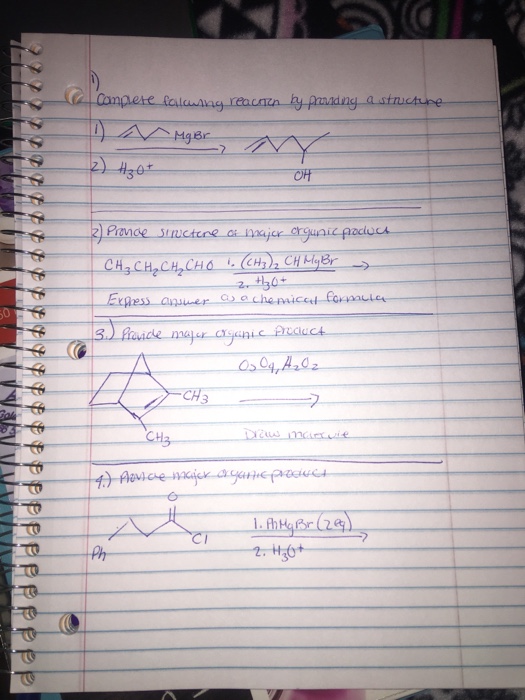 1)
Complete following reaction by providing a structure
1) MgBr
2) H3O+
OH
2) Provide structure of major organic product
CH3CH2CH2CHO 1. (CH3)2CHMgBr →
2. H3O+
Express answer as a chemical formula
3.) Provide major organic product
OsO4, H2O2
CH3
CH3
Draw molecule
4.) Provide major organic product
O
Cl
Ph
1. PhMgBr (2eq)
2. H3O+